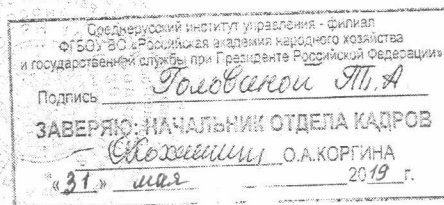 Среднерусский институт управления - филиал
ФГБОУ ВО «Российская академия народного хозяйства
и государственной службы при Президенте Российской Федерации»
Подпись Головиной Т.А
ЗАВЕРЯЮ: НАЧАЛЬНИК ОТДЕЛА КАДРОВ
О.А.КОРГИНА
«31» мая 2019 г.